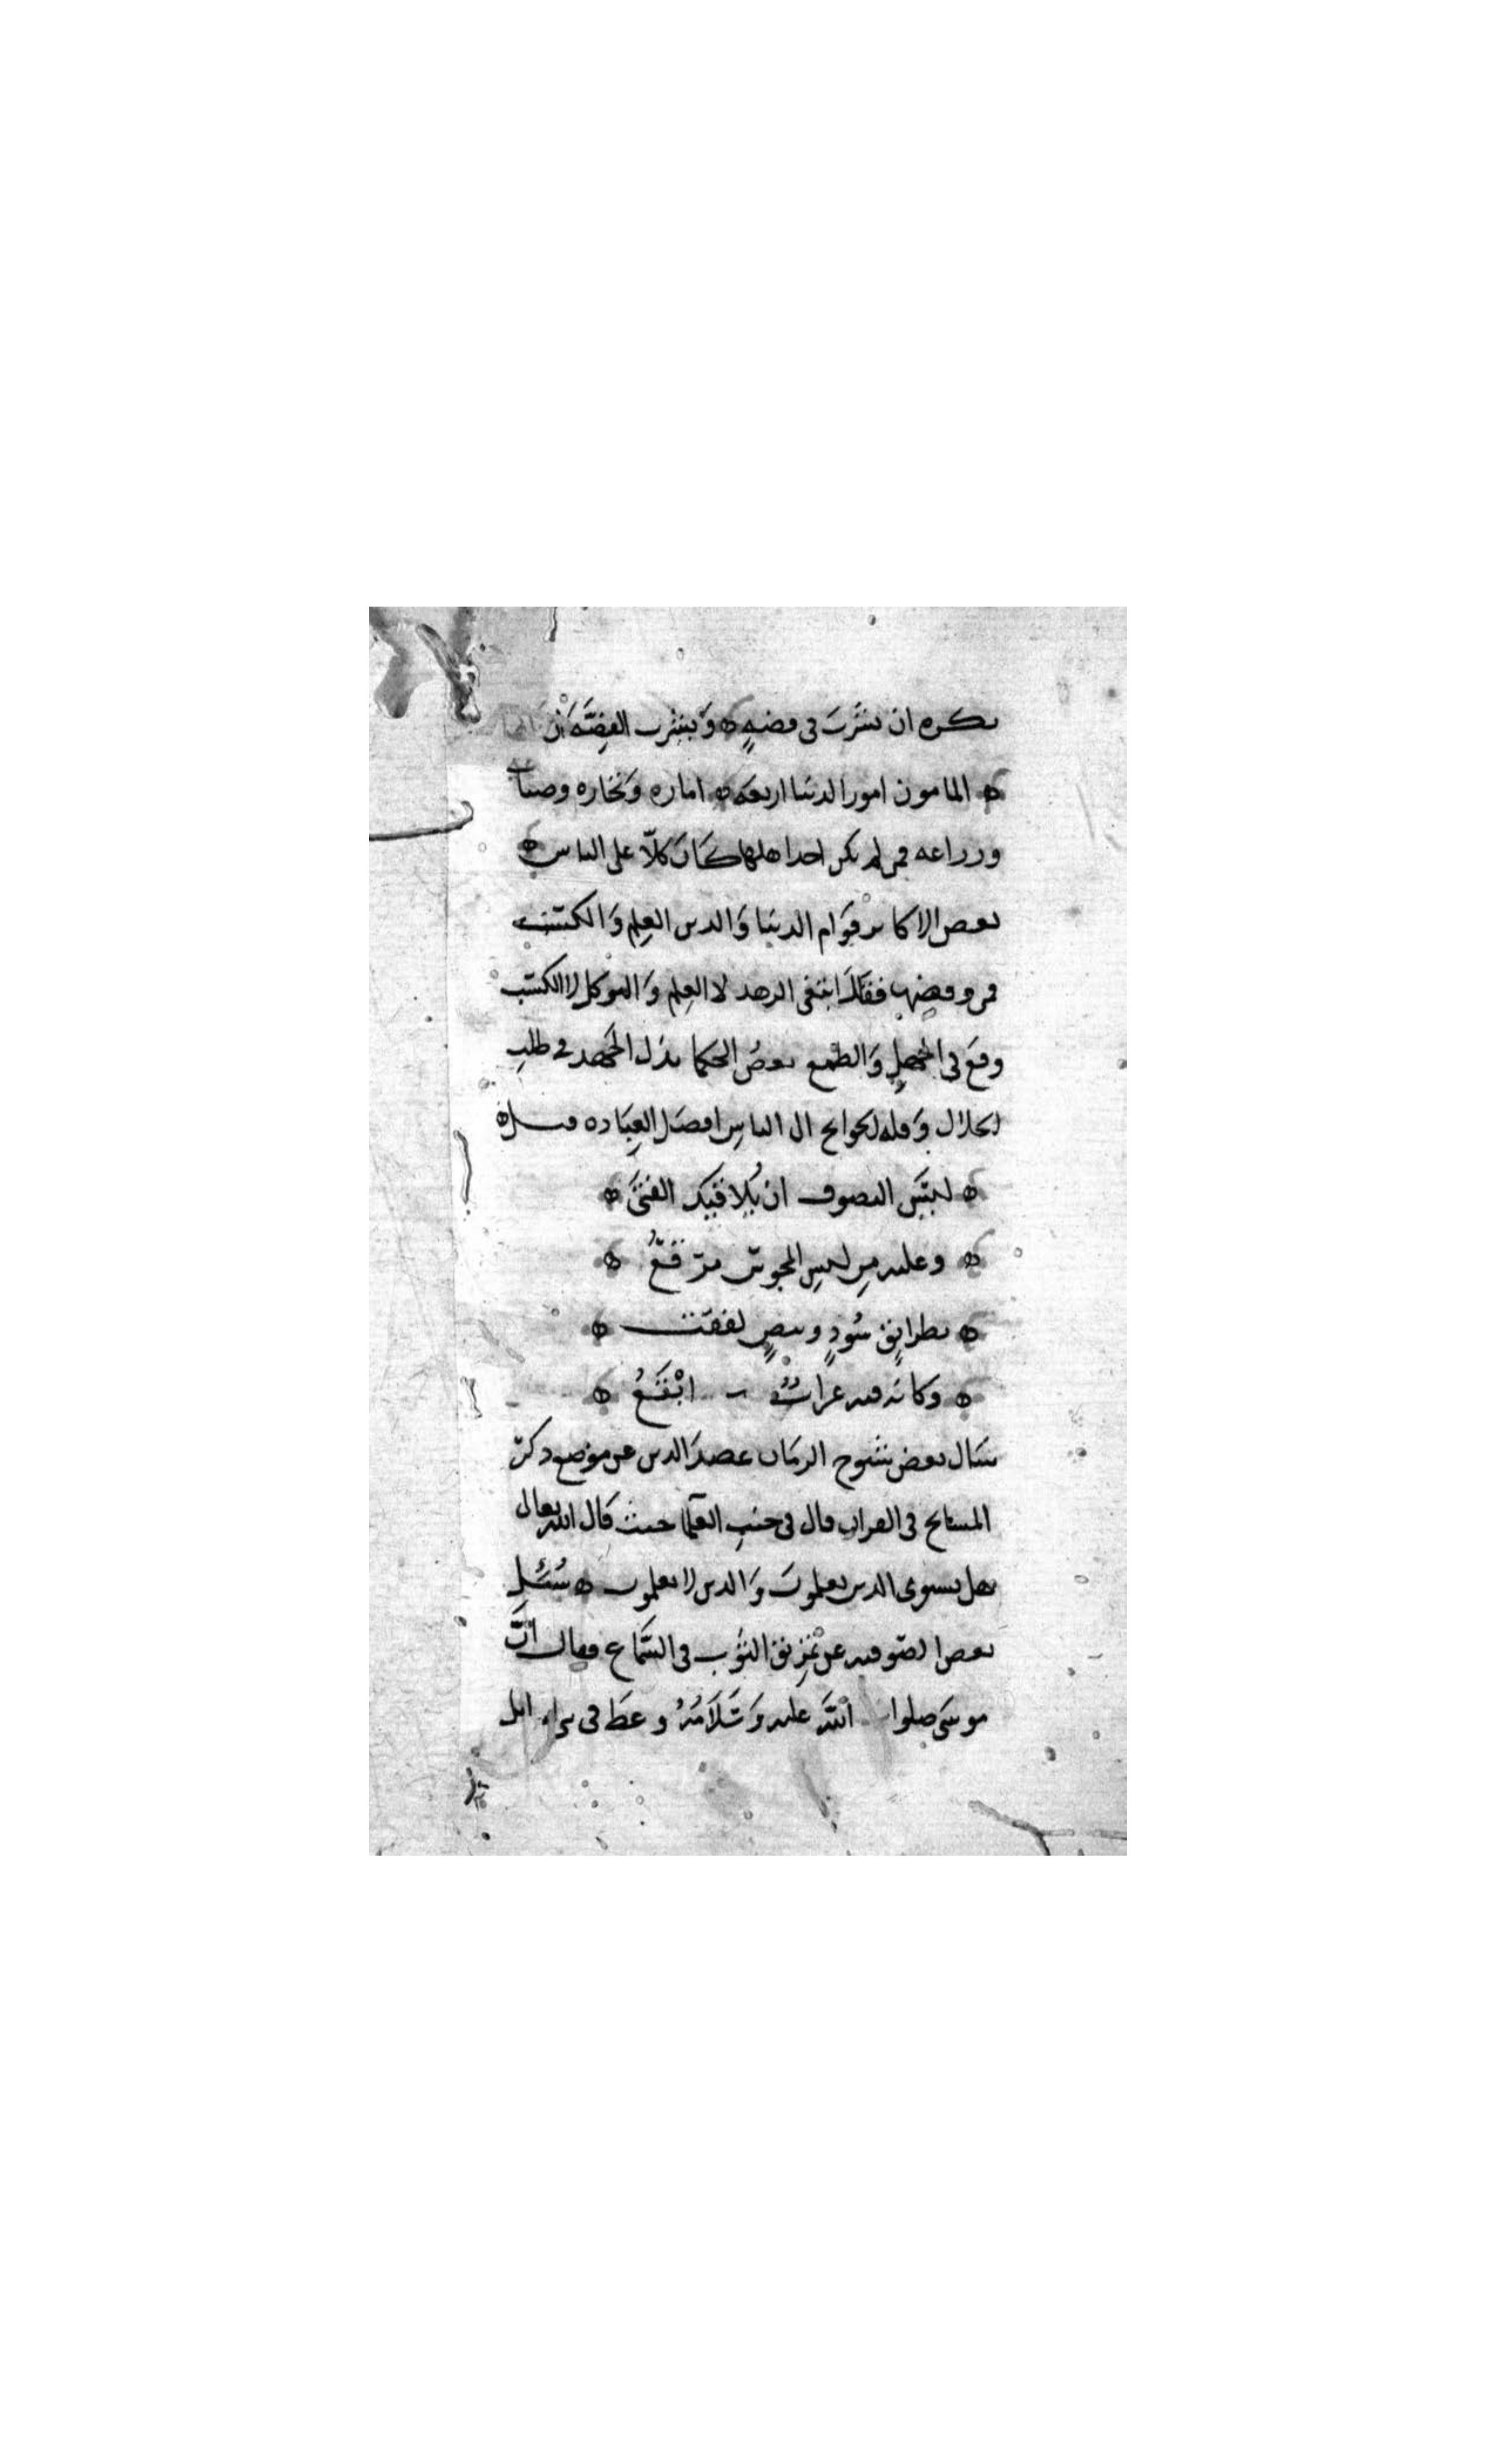 يكره ان يشرب فى فضةٍ ه وَيشرب الفِضَّة ان
ه المامون امور الدنيا اربعة ه امارة وَتجارة وصناعة
وزراعة فمن لم يكن احد اهلها كَانَ كلًّا على الناس ه
بعض الاكابر قِوَام الدنيا وَالدين العِلم وَالكسب
فمن رفضهما فقال ابتغى الزهد لا العِلم وَالتوكل لا الكسب
وقعَ فى الجهلِ وَالطمع بعضُ الحكما بذل الجهد فى طلبِ
الحلال وَقلة الحوايج الى الناسِ افضل العِبَادة
ه ليسَ التصوف ان يُلاقيك الفتىَ ه
ه وعليه مِن لبس المجوس مرقّعُ ه
ه بطرايقٍ سُودٍ وبيضٍ لفقت ه
ه وَكانه فيه غرابٌ ابْقَعُ ه
سَال بعض شيوخ الزمان عضدَ الدين عن موضع ذكر
المشايخ فى القران قال فى جنبِ العلما حيث قَال الله تعالى
هل يستوى الذين يعلمونَ وَالذين لا يعلمون ه سُئلِ
بعض الصّوفية عن تمزِيق الثوب فى السَّمَاع فقال انَّ
موسَى صلوات اللهَ عليه وَسَلَامُهُ وعظَ فى بنى